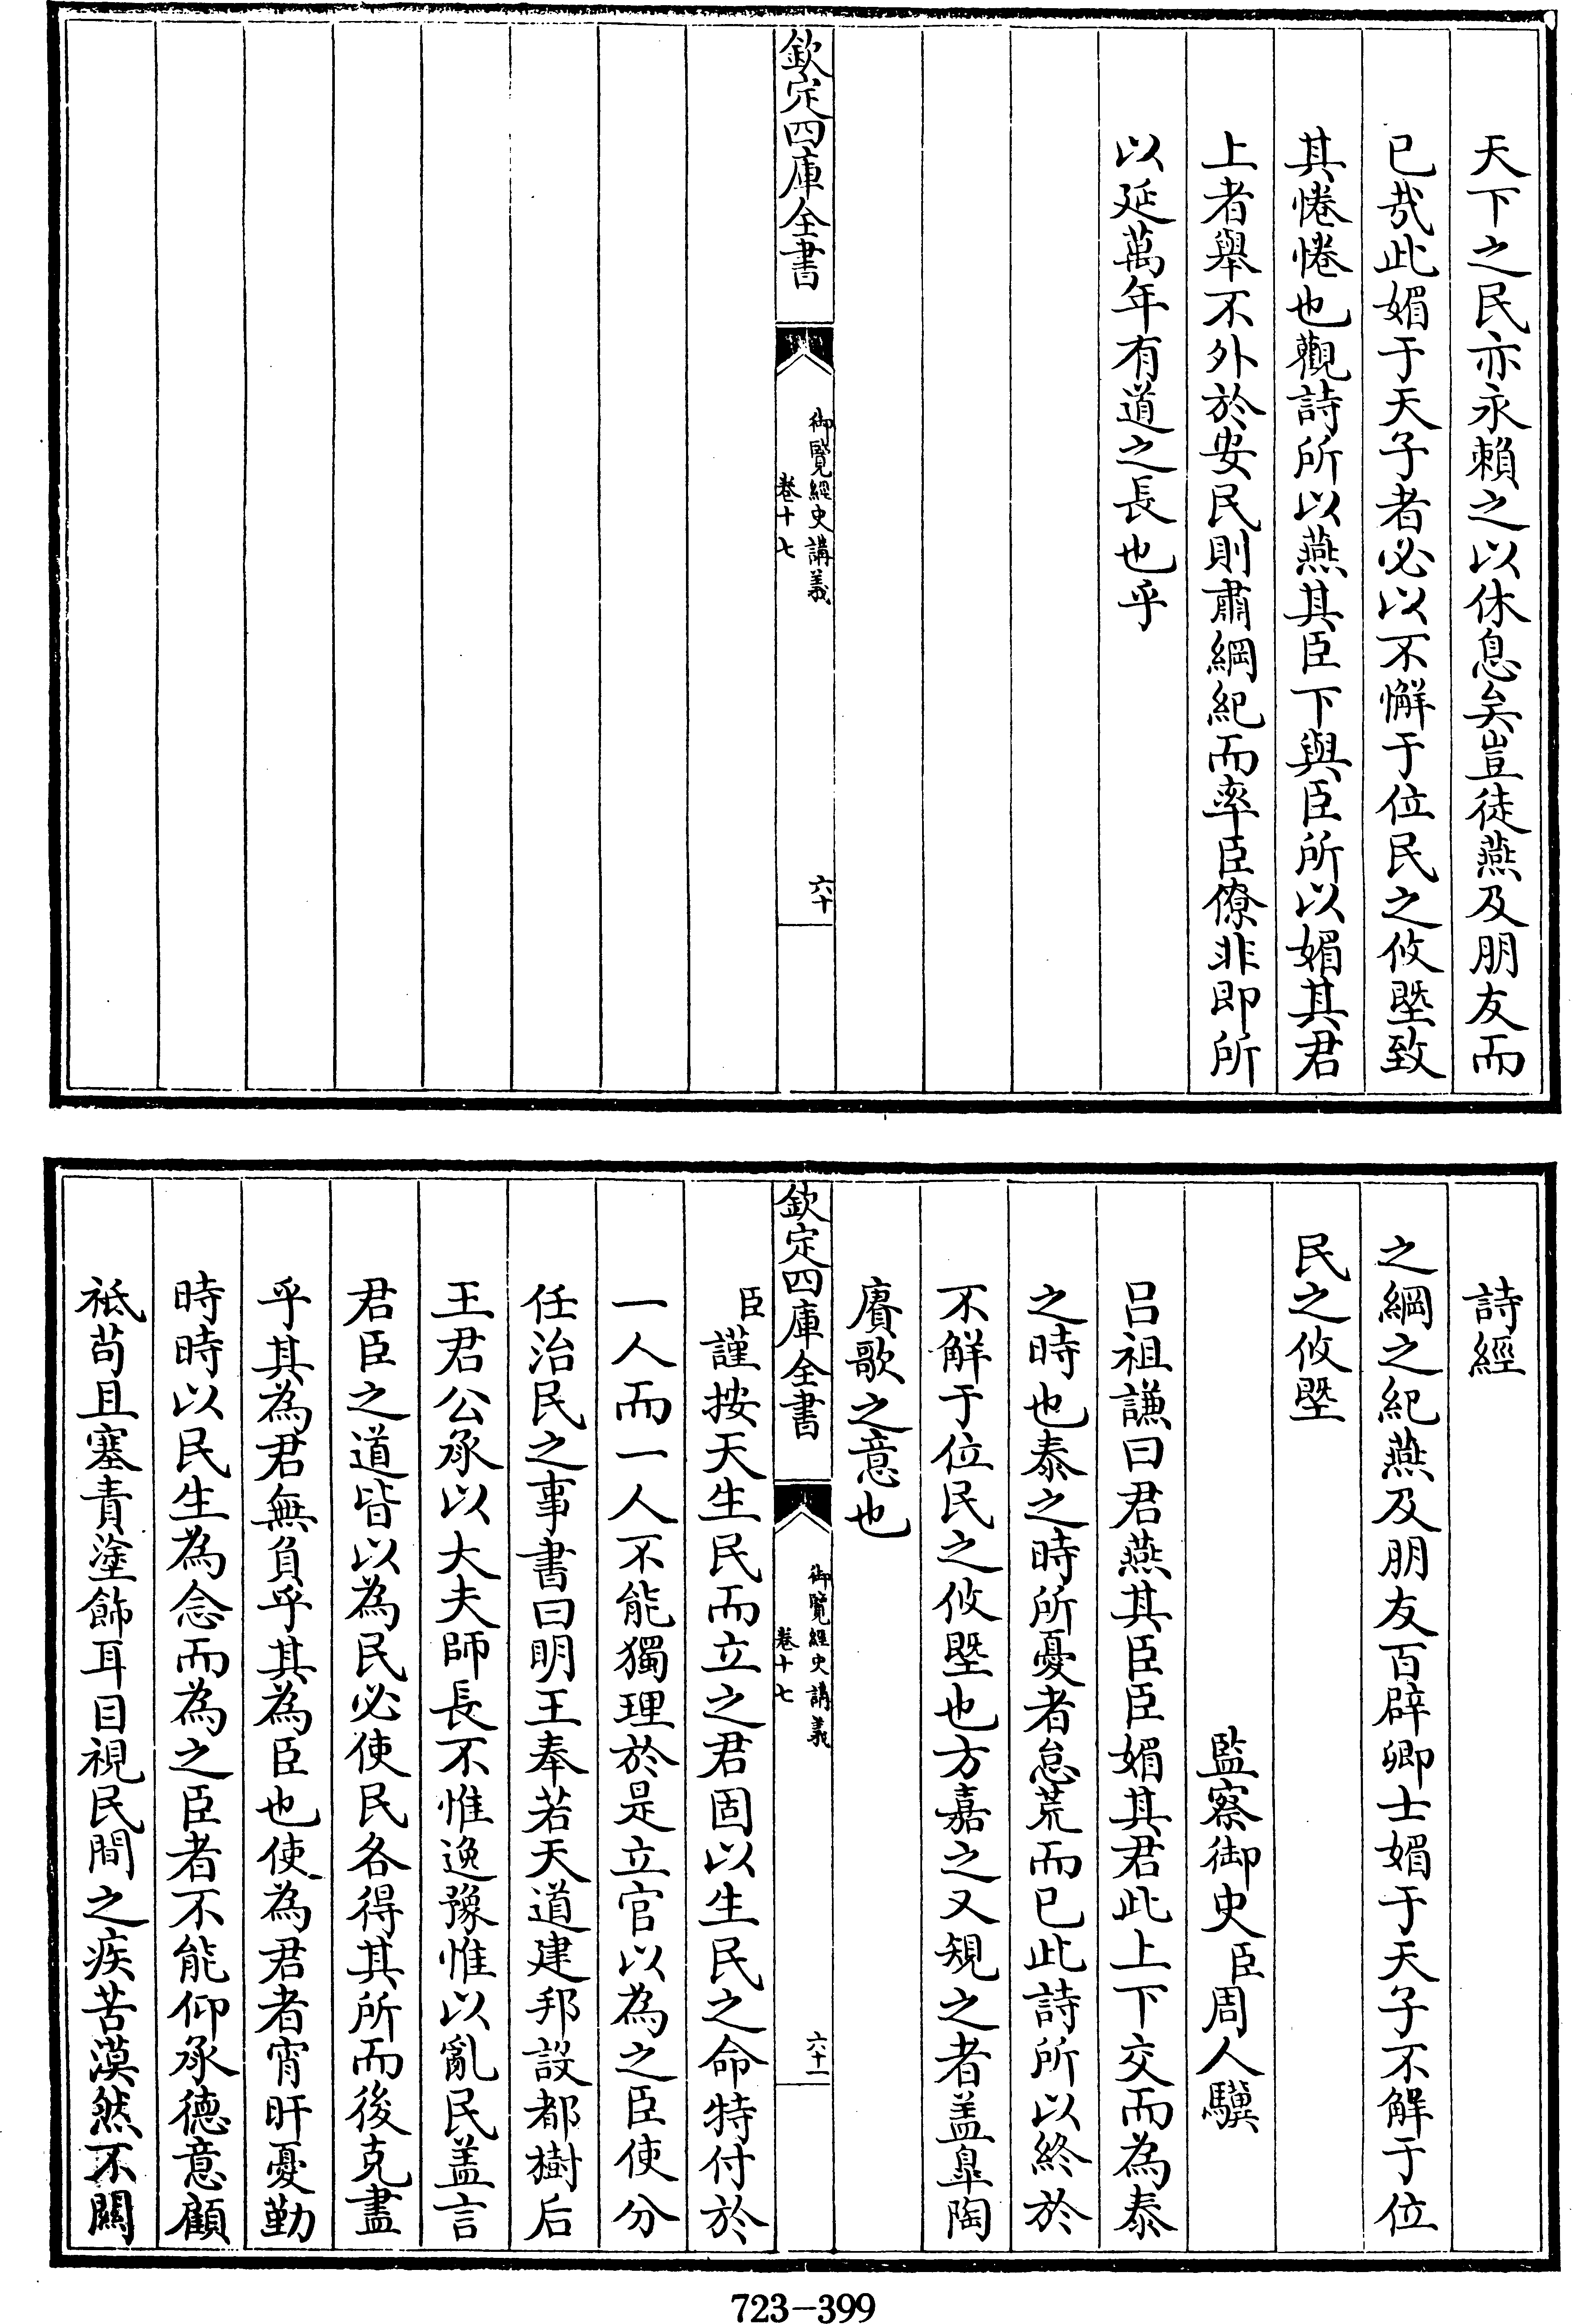 天下之民亦永賴之以休息矣豈徒燕及朋友而
已哉此媚于天子者必以不懈于位民之攸墍致
其惓惓也觀詩所以燕其臣下與臣所以媚其君
上者舉不外於安民則肅綱紀而率臣僚非即所
以延萬年有道之長也乎
欽定四庫全書
御覽經史講義
卷十七
六十
詩經
之綱之紀燕及朋友百辟卿士媚于天子不解于位
民之攸墍
監察御史臣周人驥
呂祖謙曰君燕其臣臣媚其君此上下交而為泰
之時也泰之時所憂者怠荒而已此詩所以終於
不解于位民之攸墍也方嘉之又規之者盖臯陶
賡歌之意也
欽定四庫全書
御覽經史講義
卷十七
六十一
臣謹按天生民而立之君固以生民之命特付於
一人而一人不能獨理於是立官以為之臣使分
任治民之事書曰明王奉若天道建邦設都樹后
王君公承以大夫師長不惟逸豫惟以亂民盖言
君臣之道皆以為民必使民各得其所而後克盡
乎其為君無負乎其為臣也使為君者宵旰憂勤
時時以民生為念而為之臣者不能仰承德意顧
祗苟且塞責塗飾耳目視民間之疾苦漠然不關
723-399